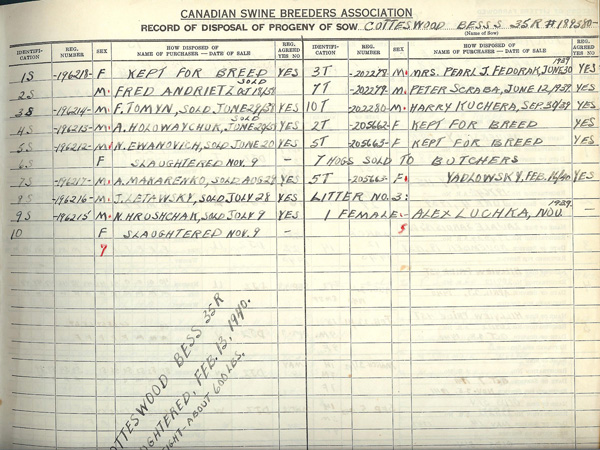 CANADIAN SWINE BREEDERS ASSOCIATION
RECORD OF DISPOSAL OF PROGENY OF SOW COTTESWOOD BESS 35R #189580-
(Name of Sow)
IDENTIFI-CATION REG. NUMBER SEX HOW DISPOSED OF NAME OF PURCHASER - DATE OF SALE REG. AGREED YES NO IDENTIFI-CATION REG. NUMBER SEX HOW DISPOSED OF NAME OF PURCHASER - DATE OF SALE REG. AGREED YES NO
1S -196218- F KEPT FOR BREED YES 3T -202278- M. MRS. PEARL J. FEDORAK, JUNE 30 1939 YES
2S M. FRED ANDRIETZ SOLD OCT 18/38 7T -202279- M. PETER SCRABA, JUNE 12, 1939. YES
3S -196214- M. F. TOMYN, SOLD JUNE 29/38 YES 10T -202280- M. HARRY KUCHERA, SEP. 30/39 YES
4S -196213- M. A. HOLOWAYCHUK, SOLD JUNE 29/38 YES 2T -205662- F KEPT FOR BREED YES
5S -196212- M. N. EWANOVICH, SOLD JUNE 20 YES 5T -205663- F KEPT FOR BREED YES
6S F SLAUGHTERED NOV. 9 - 7 HOGS SOLD TO BUTCHERS
7S -196217- M. A. MAKARENKO, SOLD AUG 29 YES 5T -205663- F. YADLOWSKY, FEB. 16/40 YES
8S -196216- M. J. LETAWSKY, SOLD JULY 28 YES LITTER NO. 3:
9S -196215 M. N. HRUSHCHAK, SOLD JULY 9 YES 1 FEMALE.- ALEX LUCHKA, NOV. 1939. -
10 F SLAUGHTERED NOV. 9 - 5
9
COTTESWOOD BESS 35R
SLAUGHTERED, FEB. 13, 1940.
WEIGHT-ABOUT 600 LBS.